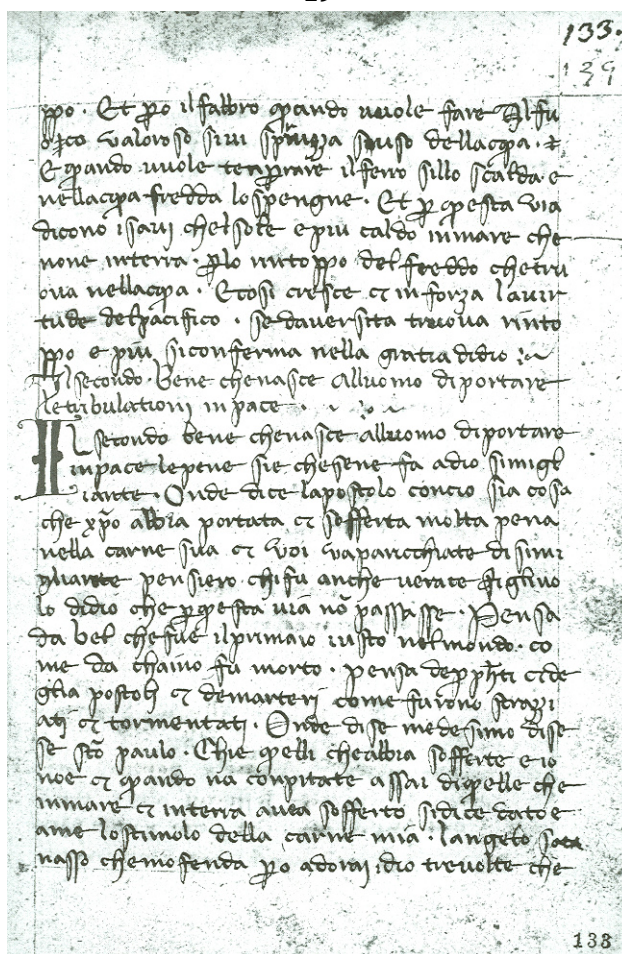 133.
139
ppo. Et po il fabbro quando vuole fare Il fu
oco valoroso sivi spruzza suso dellacqua. et
E quando vuole temprare il ferro sillo scalda e
nellacqua fredda lo spengne. Et p questa via
dicono i savi chel sole e piu caldo in mare che
none in terra. plo rintoppo del freddo che tru
ova nellacqua. E cosi cresce et in forza lavir
tude del pacifico. se daversita truova rinto
ppo e piu si conferma nella gratia didio
Il secondo. bene che nasce alluomo di portare
le tribulationi in pace
Il secondo bene che nasce alluomo di portare
in pace le pene sie che sene fa adio simigl
iante. Onde dice lapostolo concio sia cosa
che xpo abbia portata et sofferta molta pena
nella carne sua et voi vaparicchiate di simi
gliante pensiero chi fu anche verace figliuo
lo didio che p questa via no passasse. Pensa
da bel che fue il primaio iusto nel mondo. co
me da chaino fu morto. pensa de ppheti et de
gli apostoli et de marteri come furono strazi
ati et tormentati. Onde di se medesimo disse
se sco paulo. Chie quelli che abbia sofferte e io
noe et quando na conpitate assai di quelle che
in mare et in terra avea sofferto si dice dato e
ame lo stimolo della carne mia. langelo sata
nasso che mofenda po adorai idio tre volte che
133